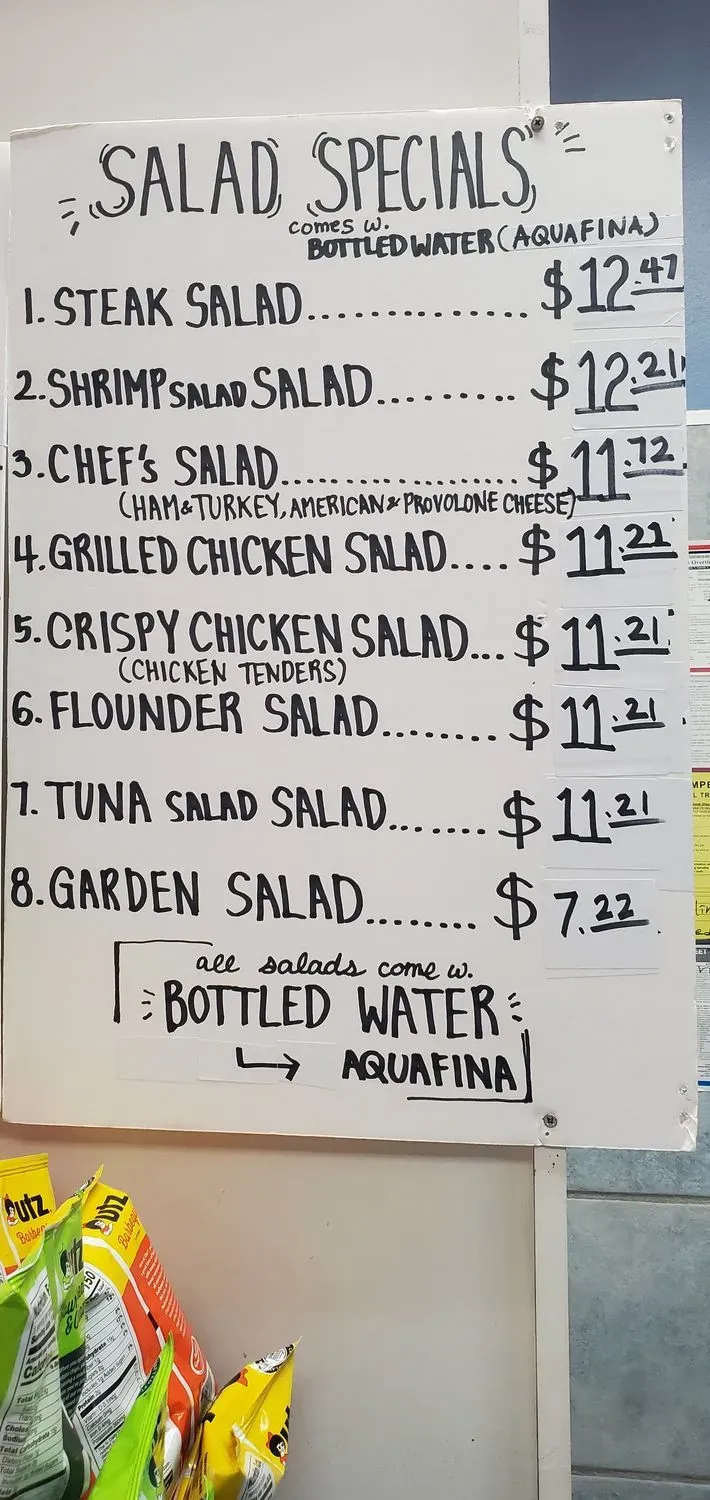 SALAD SPECIALS
comes w.
BOTTLED WATER (AQUAFINA)
1. STEAK SALAD.............. $12.47
2. SHRIMP SALAD SALAD......... $12.21
3. CHEF's SALAD...................... $11.72
(HAM & TURKEY, AMERICAN & PROVOLONE CHEESE)
4. GRILLED CHICKEN SALAD.... $11.21
5. CRISPY CHICKEN SALAD... $11.21
(CHICKEN TENDERS)
6. FLOUNDER SALAD........ $11.21
7. TUNA SALAD SALAD....... $11.21
8. GARDEN SALAD........ $7.22
all salads come w.
BOTTLED WATER
AQUAFINA
utz
utz
150